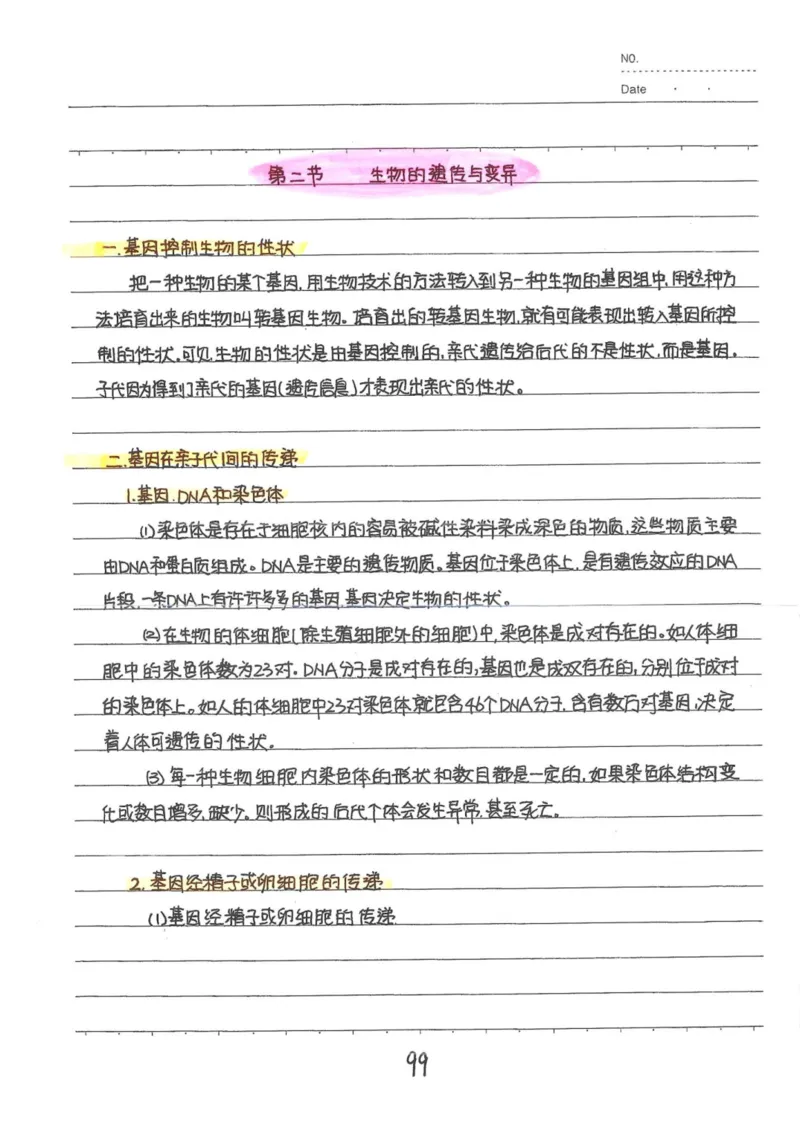 NO.
Date
第二节 生物的遗传与变异
一.基因控制生物的性状
把一种生物的某个基因,用生物技术的方法转入到另一种生物的基因组中,用这种方
法培育出来的生物叫转基因生物。培育出的转基因生物,就有可能表现出转入基因所控
制的性状,可见,生物的性状是由基因控制的,亲代遗传给后代的不是性状,而是基因。
子代因为得到了亲代的基因(遗传信息)才表现出亲代的性状。
二.基因在亲子代间的传递
1.基因.DNA和染色体
(1)染色体是存在于细胞核内的容易被碱性染料染成深色的物质,这些物质主要
由DNA和蛋白质组成。DNA是主要的遗传物质。基因位于染色体上,是有遗传效应的DNA
片段,一条DNA上有许许多多的基因,基因决定生物的性状。
(2)在生物的体细胞(除生殖细胞外的细胞)中,染色体是成对存在的。如人体细
胞中的染色体数为23对。DNA分子是成对存在的,基因也是成双存在的,分别位于成对
的染色体上。如人的体细胞中23对染色体就包含46个DNA分子,含有数万对基因,决定
着人体可遗传的性状。
(3)每一种生物细胞内染色体的形状和数目都是一定的,如果染色体结构变
化或数目增多,缺少。则形成的后代个体会发生异常,甚至死亡。
2.基因经精子或卵细胞的传递
(1)基因经精子或卵细胞的传递
99